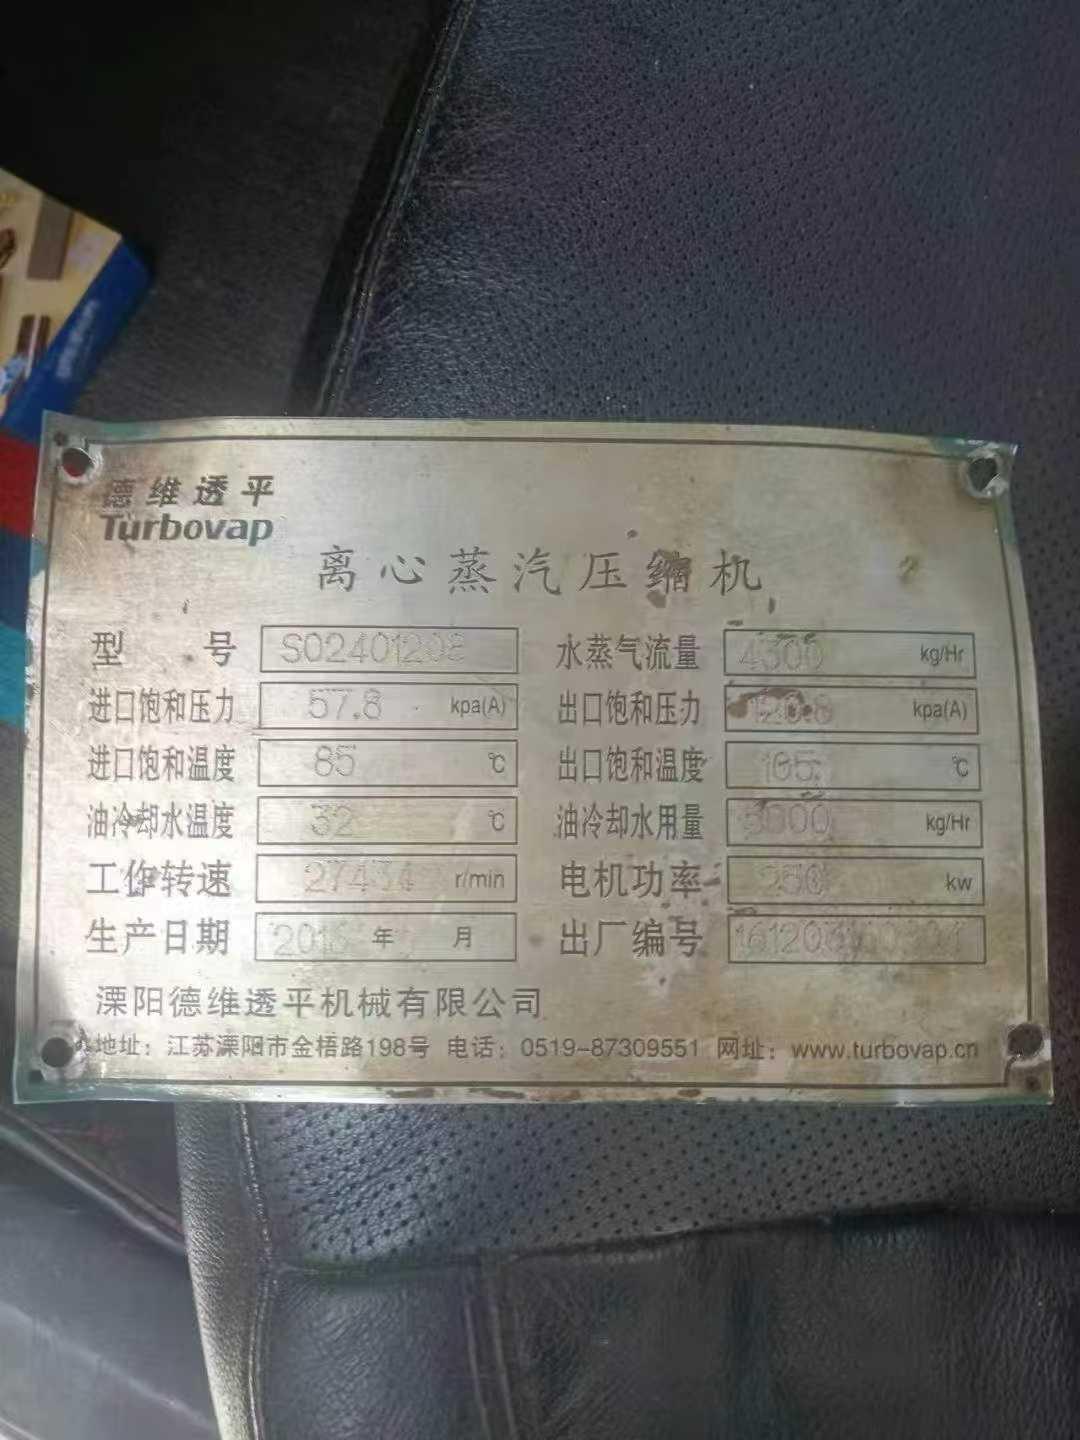 德维透平
Turbovap
离心蒸汽压缩机
型号 S02401208 水蒸气流量 4300 kg/Hr
进口饱和压力 57.8 kpa(A) 出口饱和压力 kpa(A)
进口饱和温度 85 ℃ 出口饱和温度 105 ℃
油冷却水温度 32 ℃ 油冷却水用量 kg/Hr
工作转速 27434 r/min 电机功率 250 kw
生产日期 年 月 出厂编号
溧阳德维透平机械有限公司
地址：江苏溧阳市金梧路198号 电话：0519-87309551 网址：www.turbovap.cn